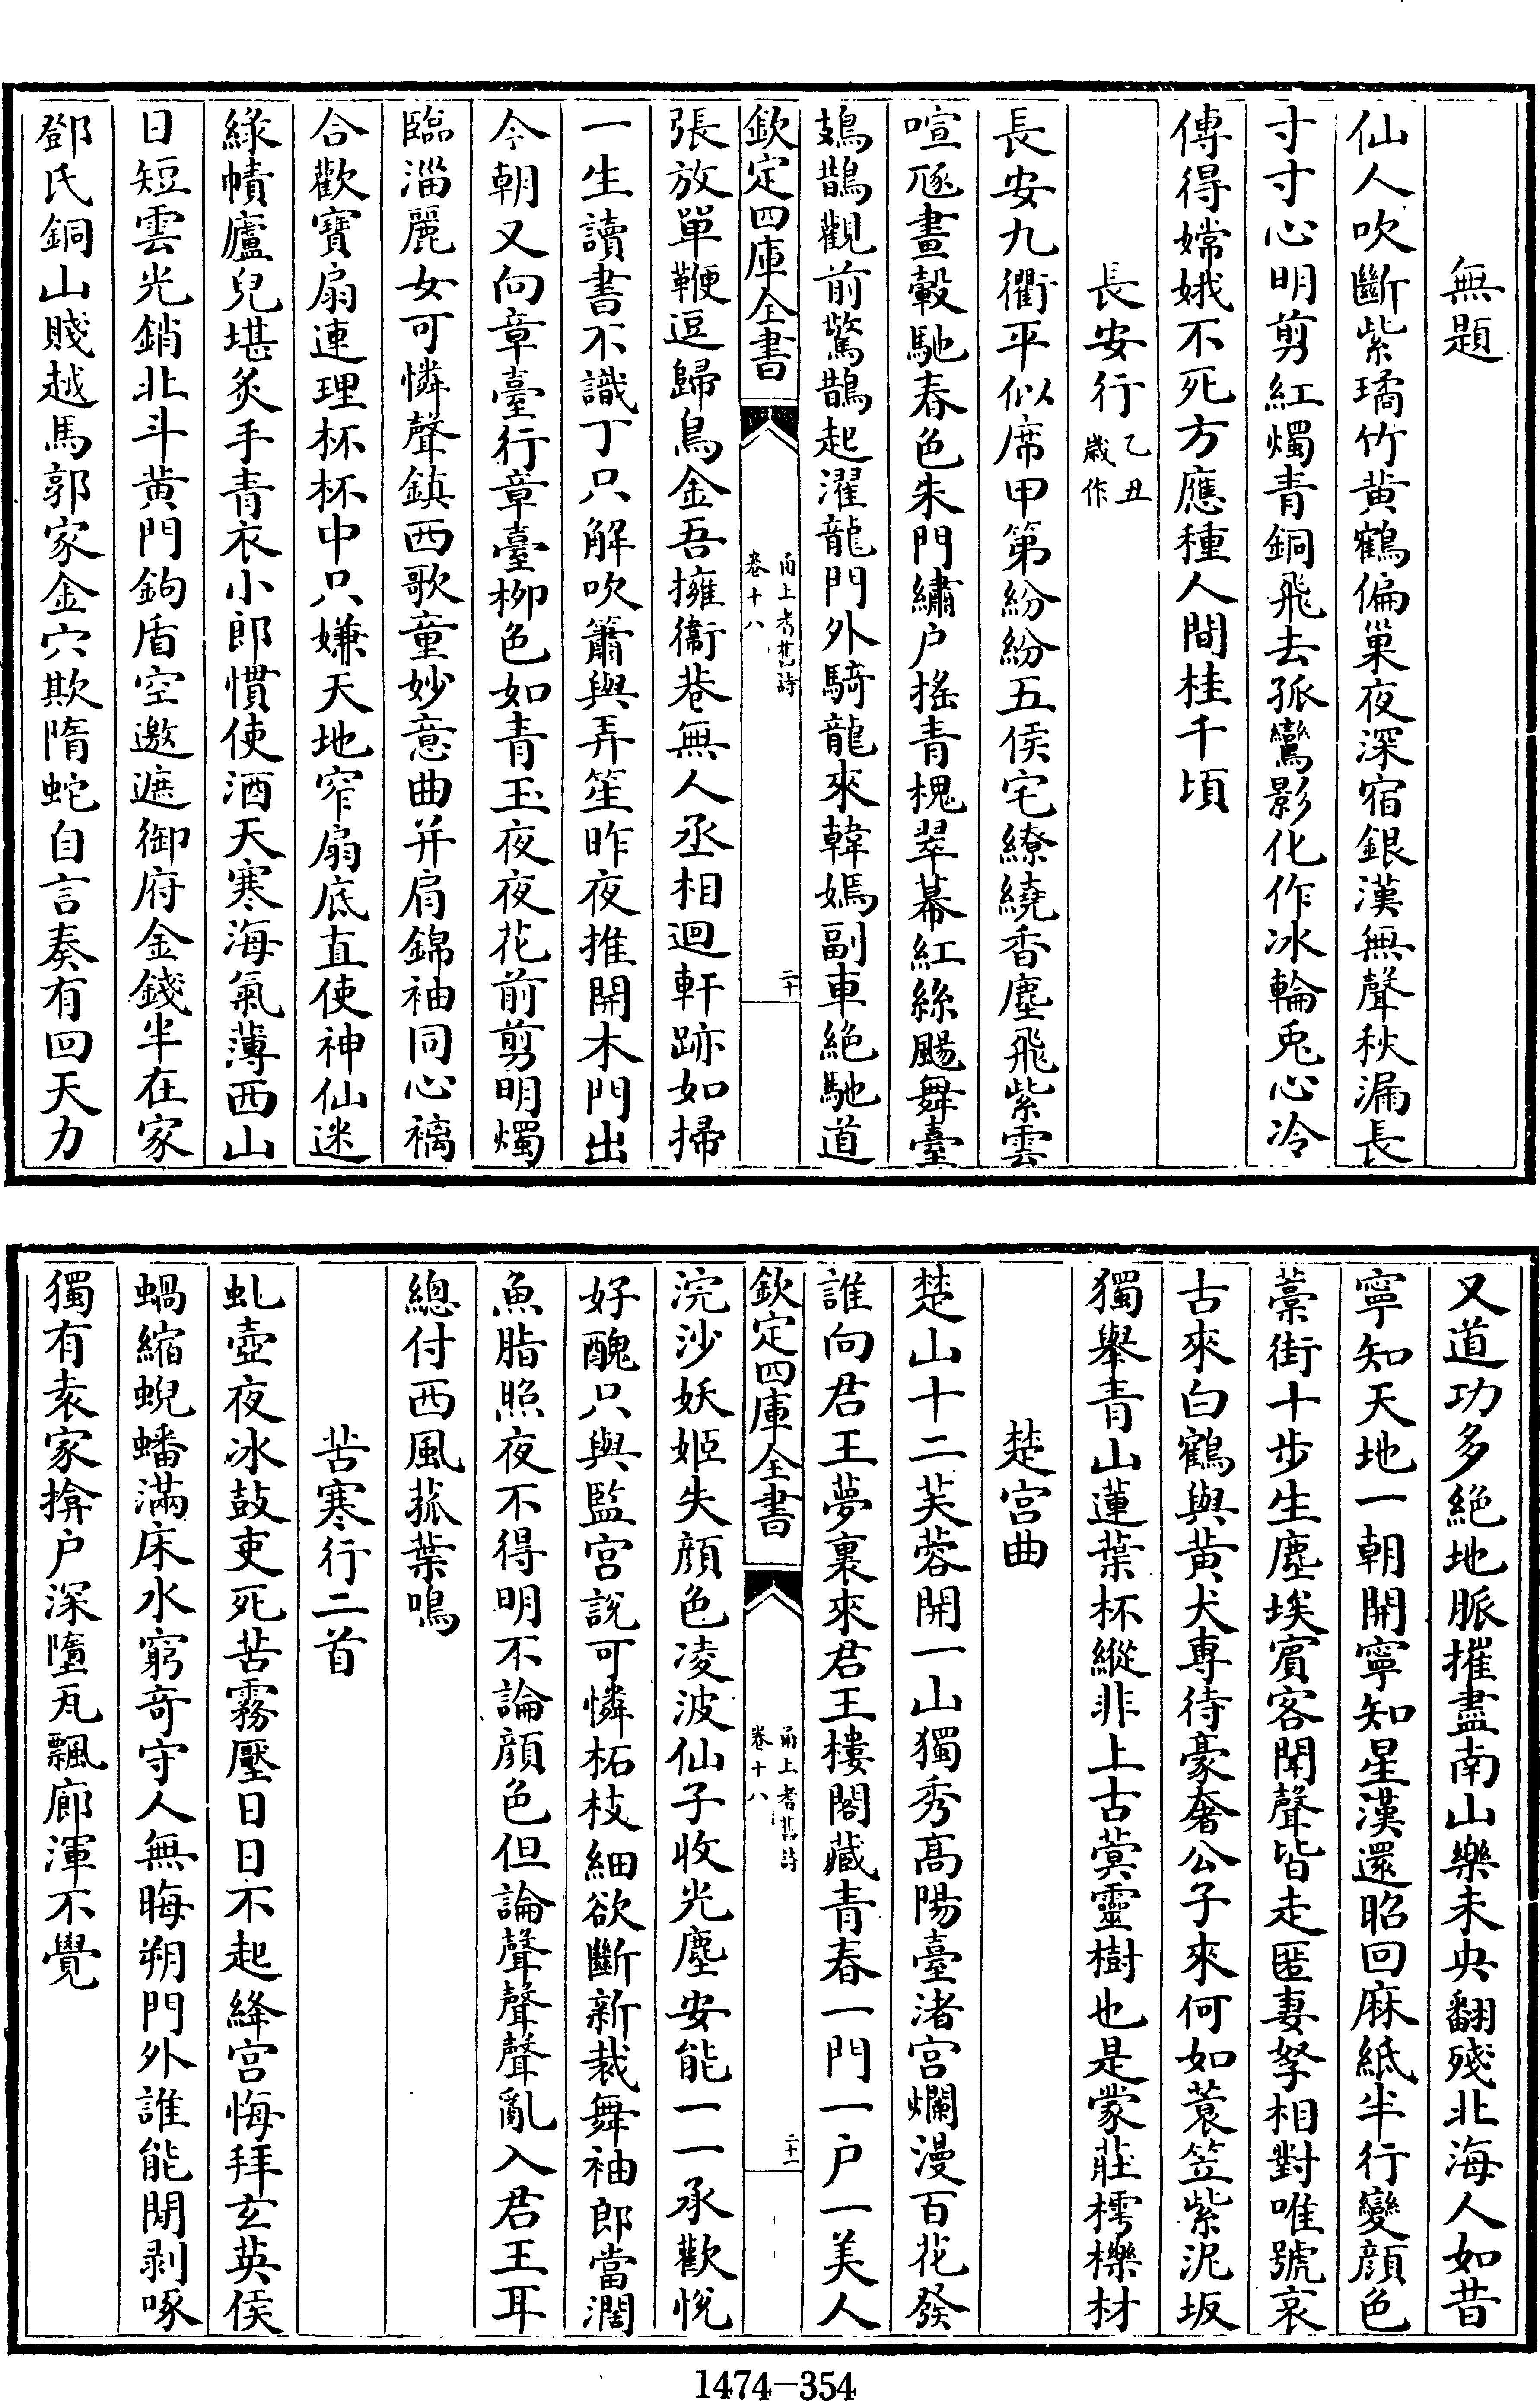 無題
仙人吹斷紫璚竹黄鶴偏巢夜深宿銀漢無聲秋漏長
寸寸心明剪紅燭青銅飛去孤鸞影化作冰輪兎心冷
傳得嫦娥不死方應種人間桂千頃
長安行乙丑歳作
長安九衢平似席甲第紛紛五侯宅繚繞香塵飛紫雲
喧豗畫轂馳春色朱門繡户搖青槐翠幕紅絲颺舞臺
鳷鵲觀前驚鵲起濯龍門外騎龍來韓嫣副車絶馳道
欽定四庫全書
甬上耆舊詩
卷十八
二十
張放單鞭逗歸鳥金吾擁衞巷無人丞相迴軒跡如掃
一生讀書不識丁只解吹簫與弄笙昨夜推開木門出
今朝又向章臺行章臺柳色如青玉夜夜花前剪明燭
臨淄麗女可憐聲鎮西歌童妙意曲并肩錦袖同心褵
合歡寶扇連理杯杯中只嫌天地窄扇底直使神仙迷
緑幘廬兒堪炙手青衣小郎慣使酒天寒海氣薄西山
日短雲光銷北斗黄門鉤盾空邀遮御府金錢半在家
鄧氏銅山賤越馬郭家金穴欺隋蛇自言奏有回天力
又道功多絶地脈摧盡南山樂未央翻殘北海人如昔
寧知天地一朝開寧知星漢還昭回麻紙半行變顔色
藁街十步生塵埃賓客聞聲皆走匿妻孥相對唯號哀
古來白鶴與黄犬専待豪奢公子來何如蓑笠紫泥坂
獨舉青山蓮葉杯縱非上古蓂靈樹也是蒙莊樗櫟材
楚宫曲
楚山十二芙蓉開一山獨秀髙陽臺渚宫爛漫百花發
誰向君王夢裏來君王樓閣藏青春一門一户一美人
欽定四庫全書
甬上耆舊詩
卷十八
二十一
浣沙妖姬失顔色凌波仙子收光塵安能一一承歡悦
好醜只與監宫説可憐柘枝細欲斷新裁舞袖郎當濶
魚脂照夜不得明不論顔色但論聲聲聲亂入君王耳
總付西風菰葉鳴
苦寒行二首
虬壺夜冰鼓吏死苦霧壓日日不起絳宫悔拜玄英侯
蝸縮蜺蟠滿床水窮竒守人無晦朔門外誰能閒剥啄
獨有袁家揜户深墮瓦飄廊渾不覺
1474-354